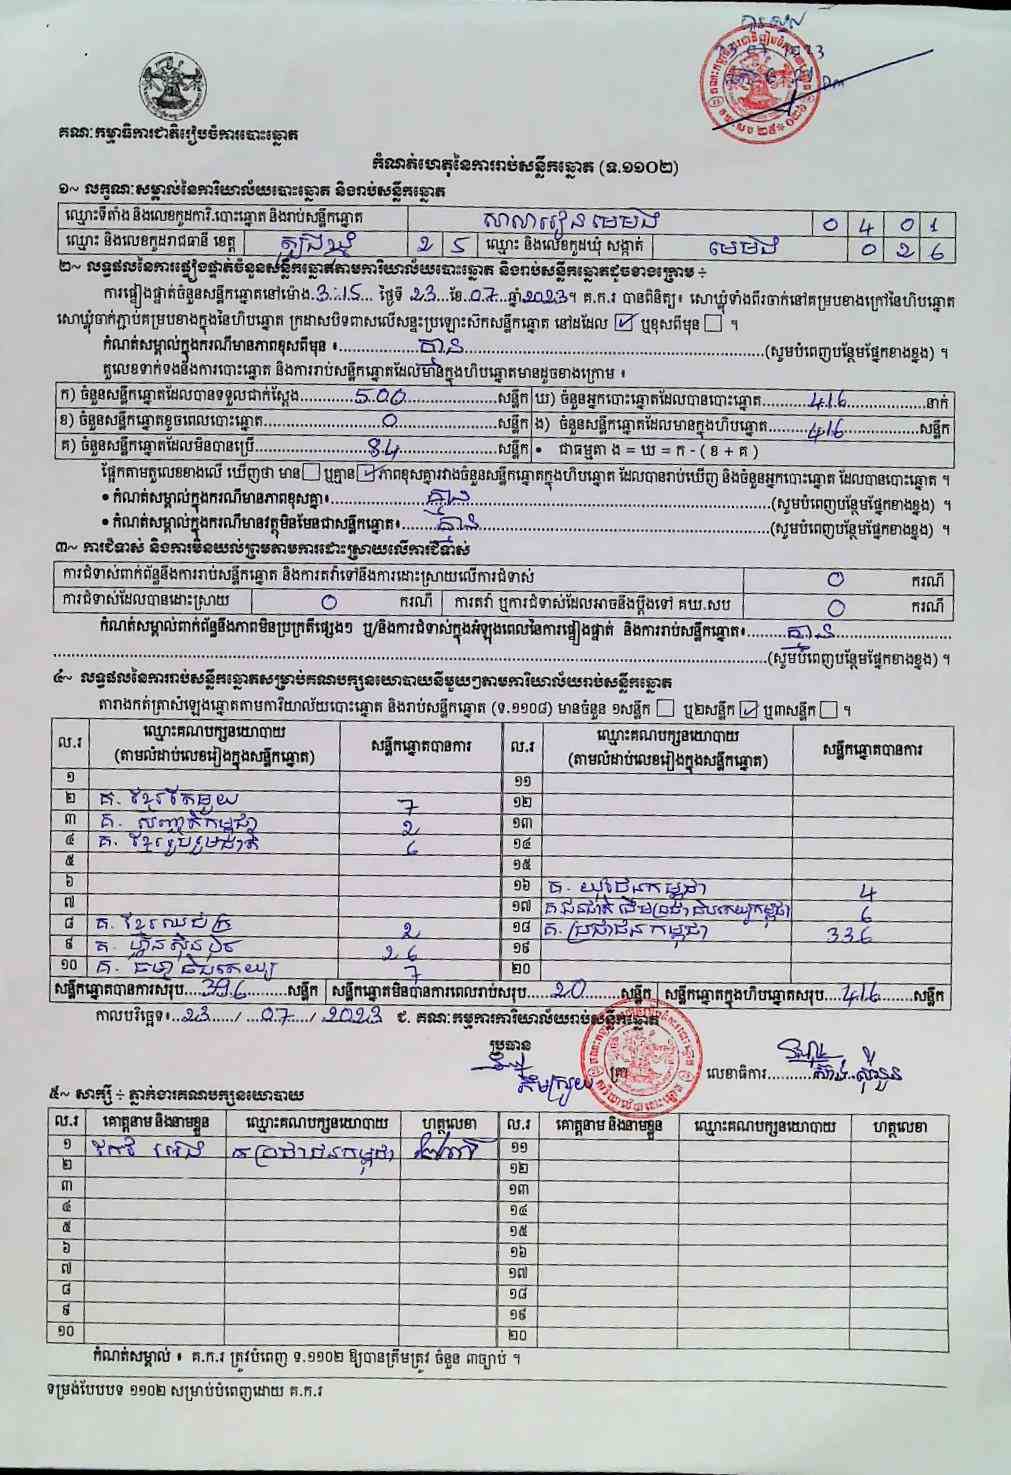 គណៈកម្មាធិការជាតិរៀបចំការបោះឆ្នោត
កំណត់ហេតុនៃការរាប់សន្លឹកឆ្នោត (ទ.១១០២)
១~ លក្ខណៈសម្គាល់នៃការិយាល័យបោះឆ្នោត និងរាប់សន្លឹកឆ្នោត
ឈ្មោះទីតាំង និងលេខកូដការិ.បោះឆ្នោត និងរាប់សន្លឹកឆ្នោត សាលារៀនមេមង 0 4 0 1
ឈ្មោះ និងលេខកូដរាជធានី ខេត្ត ត្បូងឃ្មុំ 2 5 ឈ្មោះ និងលេខកូដឃុំ សង្កាត់ មេមង 0 2 6
២~ លទ្ធផលនៃការផ្ទៀងផ្ទាត់ចំនួនសន្លឹកឆ្នោតតាមការិយាល័យបោះឆ្នោត និងរាប់សន្លឹកឆ្នោតដូចខាងក្រោម ÷
ការផ្ទៀងផ្ទាត់ចំនួនសន្លឹកឆ្នោតនៅម៉ោង.3:15... ថ្ងៃទី 23...ខែ.07...ឆ្នាំ2023។ គ.ក.រ បានពិនិត្យ៖ សោឃ្លុំទាំងពីរចាក់នៅគម្របខាងក្រៅនៃហិបឆ្នោត
សោឃ្លុំចាក់ភ្ជាប់គម្របខាងក្នុងនៃហិបឆ្នោត ក្រដាសបិទពាសលើសន្ទះប្រឡោះស៊កសន្លឹកឆ្នោត នៅដដែល ☑ ឬខុសពីមុន ☐ ។
កំណត់សម្គាល់ក្នុងករណីមានភាពខុសពីមុន ៖ គ្មាន (សូមបំពេញបន្ថែមផ្នែកខាងខ្នង) ។
តួលេខទាក់ទងនឹងការបោះឆ្នោត និងការរាប់សន្លឹកឆ្នោតដែលមានក្នុងហិបឆ្នោតមានដូចខាងក្រោម ៖
ក) ចំនួនសន្លឹកឆ្នោតដែលបានទទួលជាក់ស្តែង 500 សន្លឹក ឃ) ចំនួនអ្នកបោះឆ្នោតដែលបានបោះឆ្នោត 416 នាក់
ខ) ចំនួនសន្លឹកឆ្នោតខូចពេលបោះឆ្នោត 0 សន្លឹក ង) ចំនួនសន្លឹកឆ្នោតដែលមានក្នុងហិបឆ្នោត 416 សន្លឹក
គ) ចំនួនសន្លឹកឆ្នោតដែលមិនបានប្រើ 84 សន្លឹក • ជាធម្មតា ង = ឃ = ក - ( ខ + គ )
ផ្អែកតាមតួលេខខាងលើ ឃើញថា មាន ☐ ឬគ្មាន ☑ ភាពខុសគ្នារវាងចំនួនសន្លឹកឆ្នោតក្នុងហិបឆ្នោត ដែលបានរាប់ឃើញ និងចំនួនអ្នកបោះឆ្នោត ដែលបានបោះឆ្នោត ។
• កំណត់សម្គាល់ក្នុងករណីមានភាពខុសគ្នា៖ គ្មាន (សូមបំពេញបន្ថែមផ្នែកខាងខ្នង) ។
• កំណត់សម្គាល់ក្នុងករណីមានវត្ថុមិនមែនជាសន្លឹកឆ្នោត៖ គ្មាន (សូមបំពេញបន្ថែមផ្នែកខាងខ្នង) ។
៣~ ការជំទាស់ និងការមិនយល់ព្រមតាមការដោះស្រាយលើការជំទាស់
ការជំទាស់ពាក់ព័ន្ធនឹងការរាប់សន្លឹកឆ្នោត និងការតវ៉ាទៅនឹងការដោះស្រាយលើការជំទាស់ 0 ករណី
ការជំទាស់ដែលបានដោះស្រាយ 0 ករណី ការតវ៉ា ឬការជំទាស់ដែលអាចនឹងប្តឹងទៅ គឃ.សប 0 ករណី
កំណត់សម្គាល់ពាក់ព័ន្ធនឹងភាពមិនប្រក្រតីផ្សេងៗ ឬ/និងការជំទាស់ក្នុងអំឡុងពេលនៃការផ្ទៀងផ្ទាត់ និងការរាប់សន្លឹកឆ្នោត៖ គ្មាន
(សូមបំពេញបន្ថែមផ្នែកខាងខ្នង) ។
៤~ លទ្ធផលនៃការរាប់សន្លឹកឆ្នោតសម្រាប់គណបក្សនយោបាយនីមួយៗតាមការិយាល័យរាប់សន្លឹកឆ្នោត
តារាងកត់ត្រាសំឡេងឆ្នោតតាមការិយាល័យបោះឆ្នោត និងរាប់សន្លឹកឆ្នោត (ទ.១១០៨) មានចំនួន ១សន្លឹក ☐ ឬ២សន្លឹក ☑ ឬ៣សន្លឹក ☐ ។
ល.រ ឈ្មោះគណបក្សនយោបាយ (តាមលំដាប់លេខរៀងក្នុងសន្លឹកឆ្នោត) សន្លឹកឆ្នោតបានការ ល.រ ឈ្មោះគណបក្សនយោបាយ (តាមលំដាប់លេខរៀងក្នុងសន្លឹកឆ្នោត) សន្លឹកឆ្នោតបានការ
១ ១១
២ គ. ខ្មែរតែមួយ 7 ១២
៣ គ. សញ្ជាតិកម្ពុជា 2 ១៣
៤ គ. ខ្មែររួបរួមជាតិ 6 ១៤
៥ ១៥
៦ ១៦ គ. យុវជនកម្ពុជា 4
៧ ១៧ គ.ជនជាតិដើមប្រជាធិបតេយ្យកម្ពុជា 6
៨ គ. ខ្មែរឈប់ក្រ 2 ១៨ គ. ប្រជាជនកម្ពុជា 336
៩ គ. ហ្វ៊ុនស៊ិនប៉ិច 26 ១៩
១០ គ. ធម្មាធិបតេយ្យ 7 ២០
សន្លឹកឆ្នោតបានការសរុប 396 សន្លឹក សន្លឹកឆ្នោតមិនបានការពេលរាប់សរុប 20 សន្លឹក សន្លឹកឆ្នោតក្នុងហិបឆ្នោតសរុប 416 សន្លឹក
កាលបរិច្ឆេទ៖ 23 / 07 / 2023 ជ. គណៈកម្មការការិយាល័យរាប់សន្លឹកឆ្នោត
ប្រធាន
លេខាធិការ
៥~ សាក្សី ÷ ភ្នាក់ងារគណបក្សនយោបាយ
ល.រ គោត្តនាម និងនាមខ្លួន ឈ្មោះគណបក្សនយោបាយ ហត្ថលេខា ល.រ គោត្តនាម និងនាមខ្លួន ឈ្មោះគណបក្សនយោបាយ ហត្ថលេខា
១ គ ប្រជាជនកម្ពុជា ១១
២ ១២
៣ ១៣
៤ ១៤
៥ ១៥
៦ ១៦
៧ ១៧
៨ ១៨
៩ ១៩
១០ ២០
កំណត់សម្គាល់ ៖ គ.ក.រ ត្រូវបំពេញ ទ.១១០២ ឱ្យបានត្រឹមត្រូវ ចំនួន ៣ច្បាប់ ។
ទម្រង់បែបបទ ១១០២ សម្រាប់បំពេញដោយ គ.ក.រ